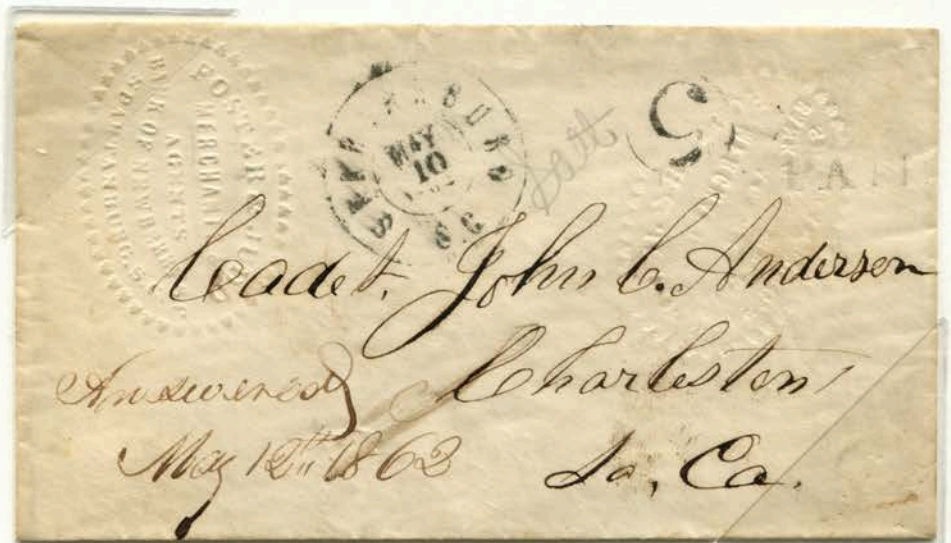 FOSTER & JUDD
MERCHANTS
AGENTS
BANK OF NEWBERRY
SPARTANBURG. S.C.
SPARTANBURG
MAY
10
S.C.
5
PAID
Cadet. John C. Anderson
Charleston
So, Ca.
Answered
May 12th 1862